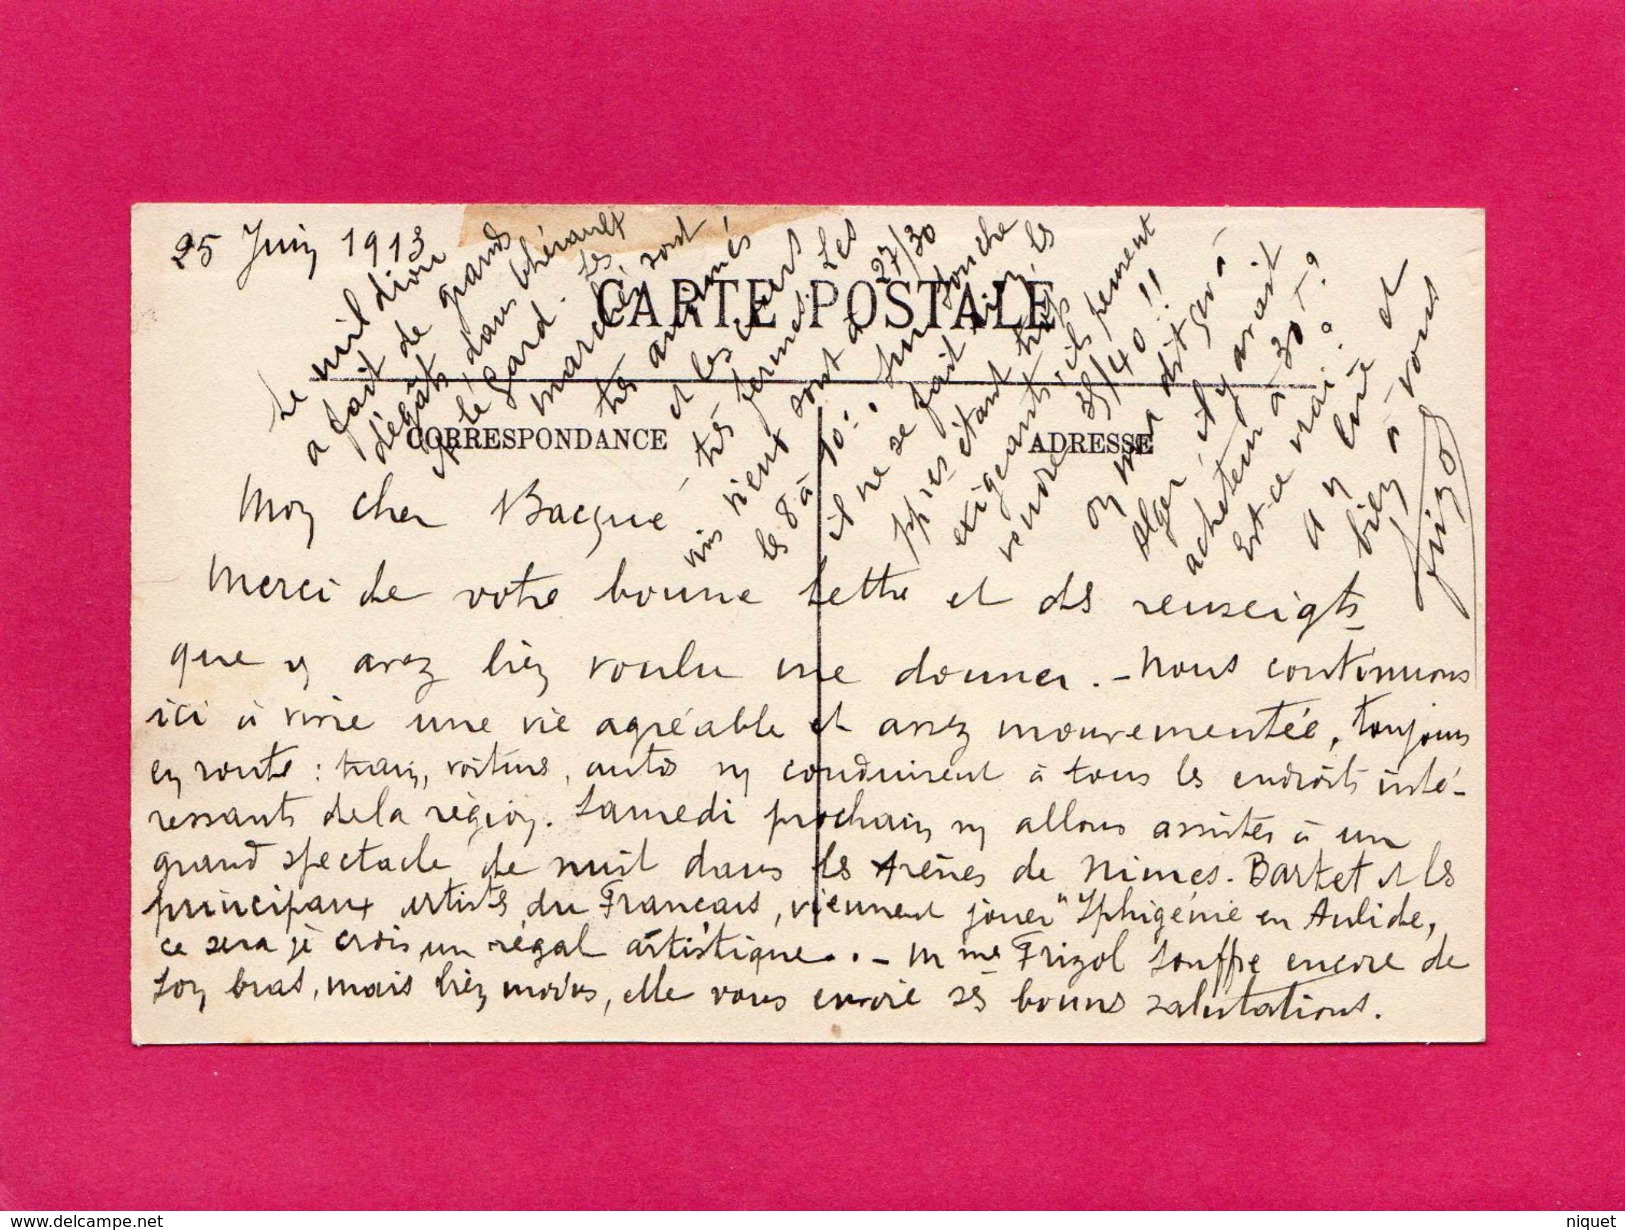 25 Juin 1913
CARTE POSTALE
CORRESPONDANCE
ADRESSE
Mon cher Bacqué
Merci de votre bonne lettre et des renseigts
que v avez bien voulu me donner. - Nous continuons
ici à vivre une vie agréable et assez mouvementée, toujours
en route : train, voitures, autos ns conduisent à tous les endroits inté-
ressants de la région. Samedi prochain ns allons assister à un
grand spectacle de nuit dans les Arènes de Nimes. Bartet et les
principaux artistes du Français, viennent jouer "Iphigénie en Aulide,
ce sera je crois un régal artistique. - Mme Frizol souffre encore de
son bras, mais bien moins, elle vous envoie ses bonnes salutations.
Le mildiou
a fait de grands
dégâts dans l'hérault
et le Gard. Les
marchés sont
très animés
et les cours
très fermes. Les
vins vieux sont à 27/30
les 8 à 10°. Sur souche
il ne se fait rien, les
pptres étant très
exigeants, ils pensent
vendre 35/40 !!
On m'a dit qu'à
Alger, il y avait
acheteur à 30 - ?
Est-ce vrai ?
A v lire et
bien à vous
Frizol
niquet
www.delcampe.net